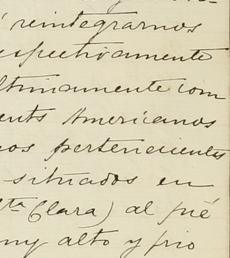 á reintegrarnos
espectivamente
ltimamente com
ents Americanos
os pertenecientes
situados en
ta Clara) al pié
my alto y frio